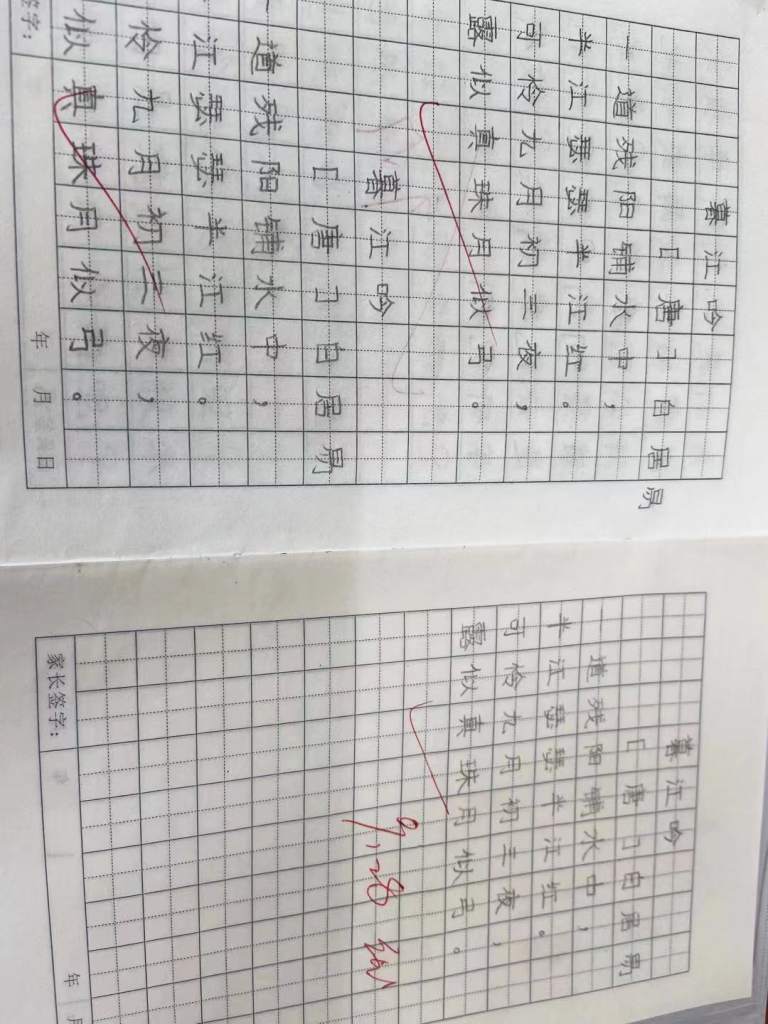 暮江吟
[唐]白居易
一道残阳铺水中,
半江瑟瑟半江红。
可怜九月初三夜,
露似真珠月似弓。
暮江吟
[唐]白居易
一道残阳铺水中,
江瑟瑟半江红。
怜九月初三夜,
似真珠月似弓。
签字: 年 月 日
暮江吟
[唐]白居易
道残阳铺水中,
半江瑟瑟半江红。
可怜九月初三夜,
露似真珠月似弓。
9,28
家长签字: 年 月